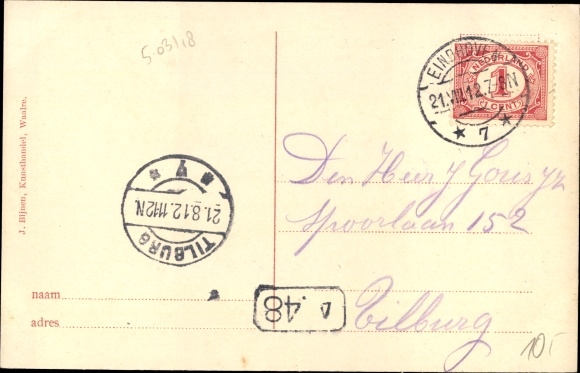 5.031,8
EINDHOVEN
21.VIII.12.7-8N
7
NEDERLAND
1
1 CENT
J. Bijnen, Kunsthandel, Waalre.
TILBURG
21.8.12.11-12N
Den Heer J
Spoorlaan 152
Tilburg
naam
adres
48
10,-